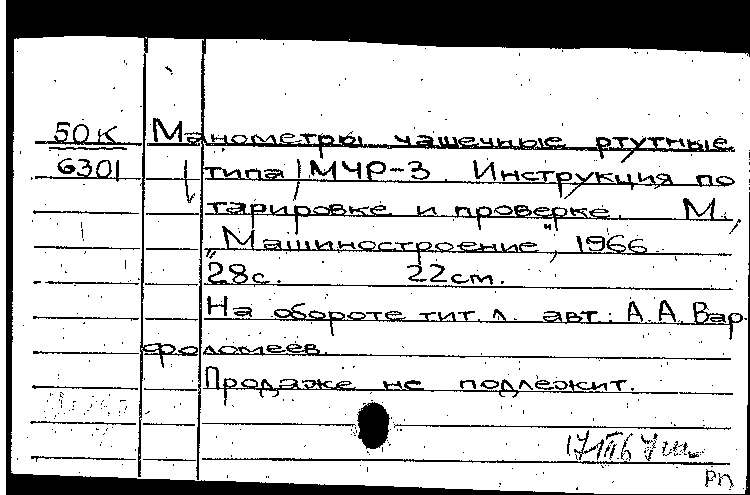 50К Манометры чашечные ртутные
6301 типа МЧР-3. Инструкция по
тарировке и проверке. М.,
„Машиностроение", 1966
28с. 22см.
На обороте тит. л. авт.: А.А. Вар-
фоломеев.
Продаже не подлежит.
17 III 67
Рп